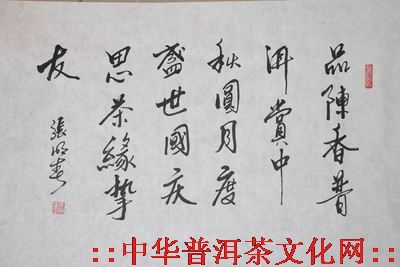 品陳香普
洱賞中
秋圓月度
盛世國庆
思茶緣挚
友
張明春
::中华普洱茶文化网::